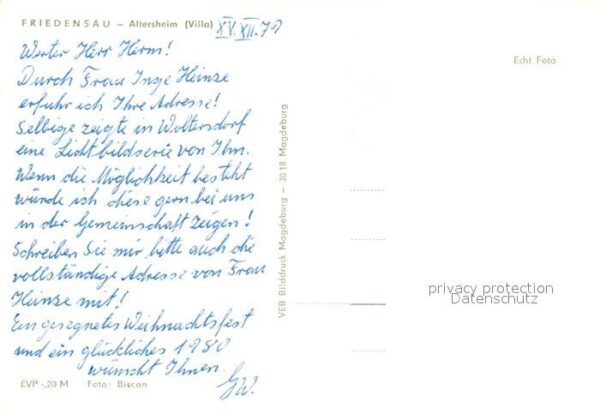 FRIEDENSAU – Altersheim (Villa)
XV. XII. 79
Werter Herr Herm!
Durch Frau Inge Heinze
erfuhr ich Ihre Adresse!
Selbige zeigte in Woltersdorf
eine Lichtbildserie von Ihn.
Wenn die Möglichkeit besteht
würde ich diese gern bei uns
in der Gemeinschaft zeigen!
Schreiben Sie mir bitte auch die
vollständige Adresse von Frau
Heinze mit!
Ein gesegnetes Weihnachtsfest
und ein glückliches 1980
wünscht Ihnen
GW.
EVP -,20 M Foto: Biscan
VEB Bilddruck Magdeburg — 3018 Magdeburg
Echt Foto
privacy protection
Datenschutz